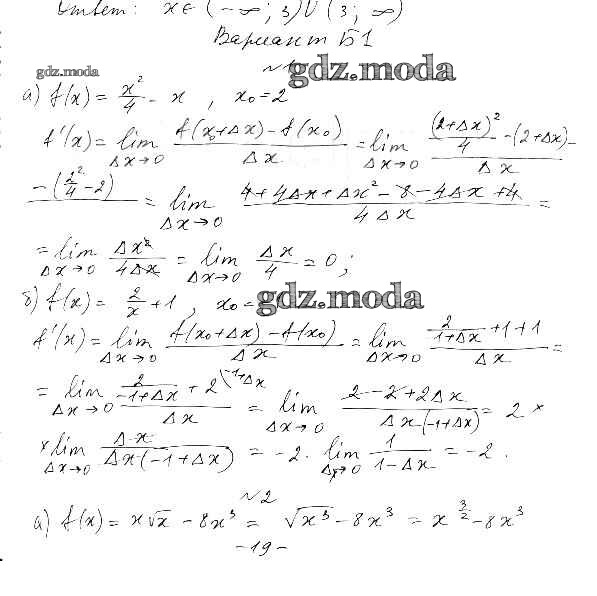 Ответ: x ∈ (-∞; 3) ∪ (3; ∞)
Вариант Б1
№1
gdz.moda
gdz.moda
а) f(x) = x²/4 - x , x₀ = 2
f'(x) = lim Δx→0 (f(x₀+Δx) - f(x₀))/Δx = lim Δx→0 ((2+Δx)²/4 - (2+Δx) -
- (2²/4 - 2))/Δx = lim Δx→0 (4+4Δx+Δx² - 8 - 4Δx + 4)/(4Δx) =
= lim Δx→0 Δx²/(4Δx) = lim Δx→0 Δx/4 = 0 ;
б) f(x) = 2/x + 1 , x₀ =
gdz.moda
f'(x) = lim Δx→0 (f(x₀+Δx) - f(x₀))/Δx = lim Δx→0 (2/(1+Δx) + 1 + 1)/Δx =
= lim Δx→0 (2/(-1+Δx) + 2 \-1+Δx)/Δx = lim Δx→0 (2 - 2 + 2Δx)/(Δx(-1+Δx)) = 2 ×
× lim Δx→0 Δx/(Δx(-1+Δx)) = -2 · lim Δx→0 1/(1-Δx) = -2 .
№2
а) f(x) = x√x - 8x³ = √x³ - 8x³ = x^(3/2) - 8x³
-19-